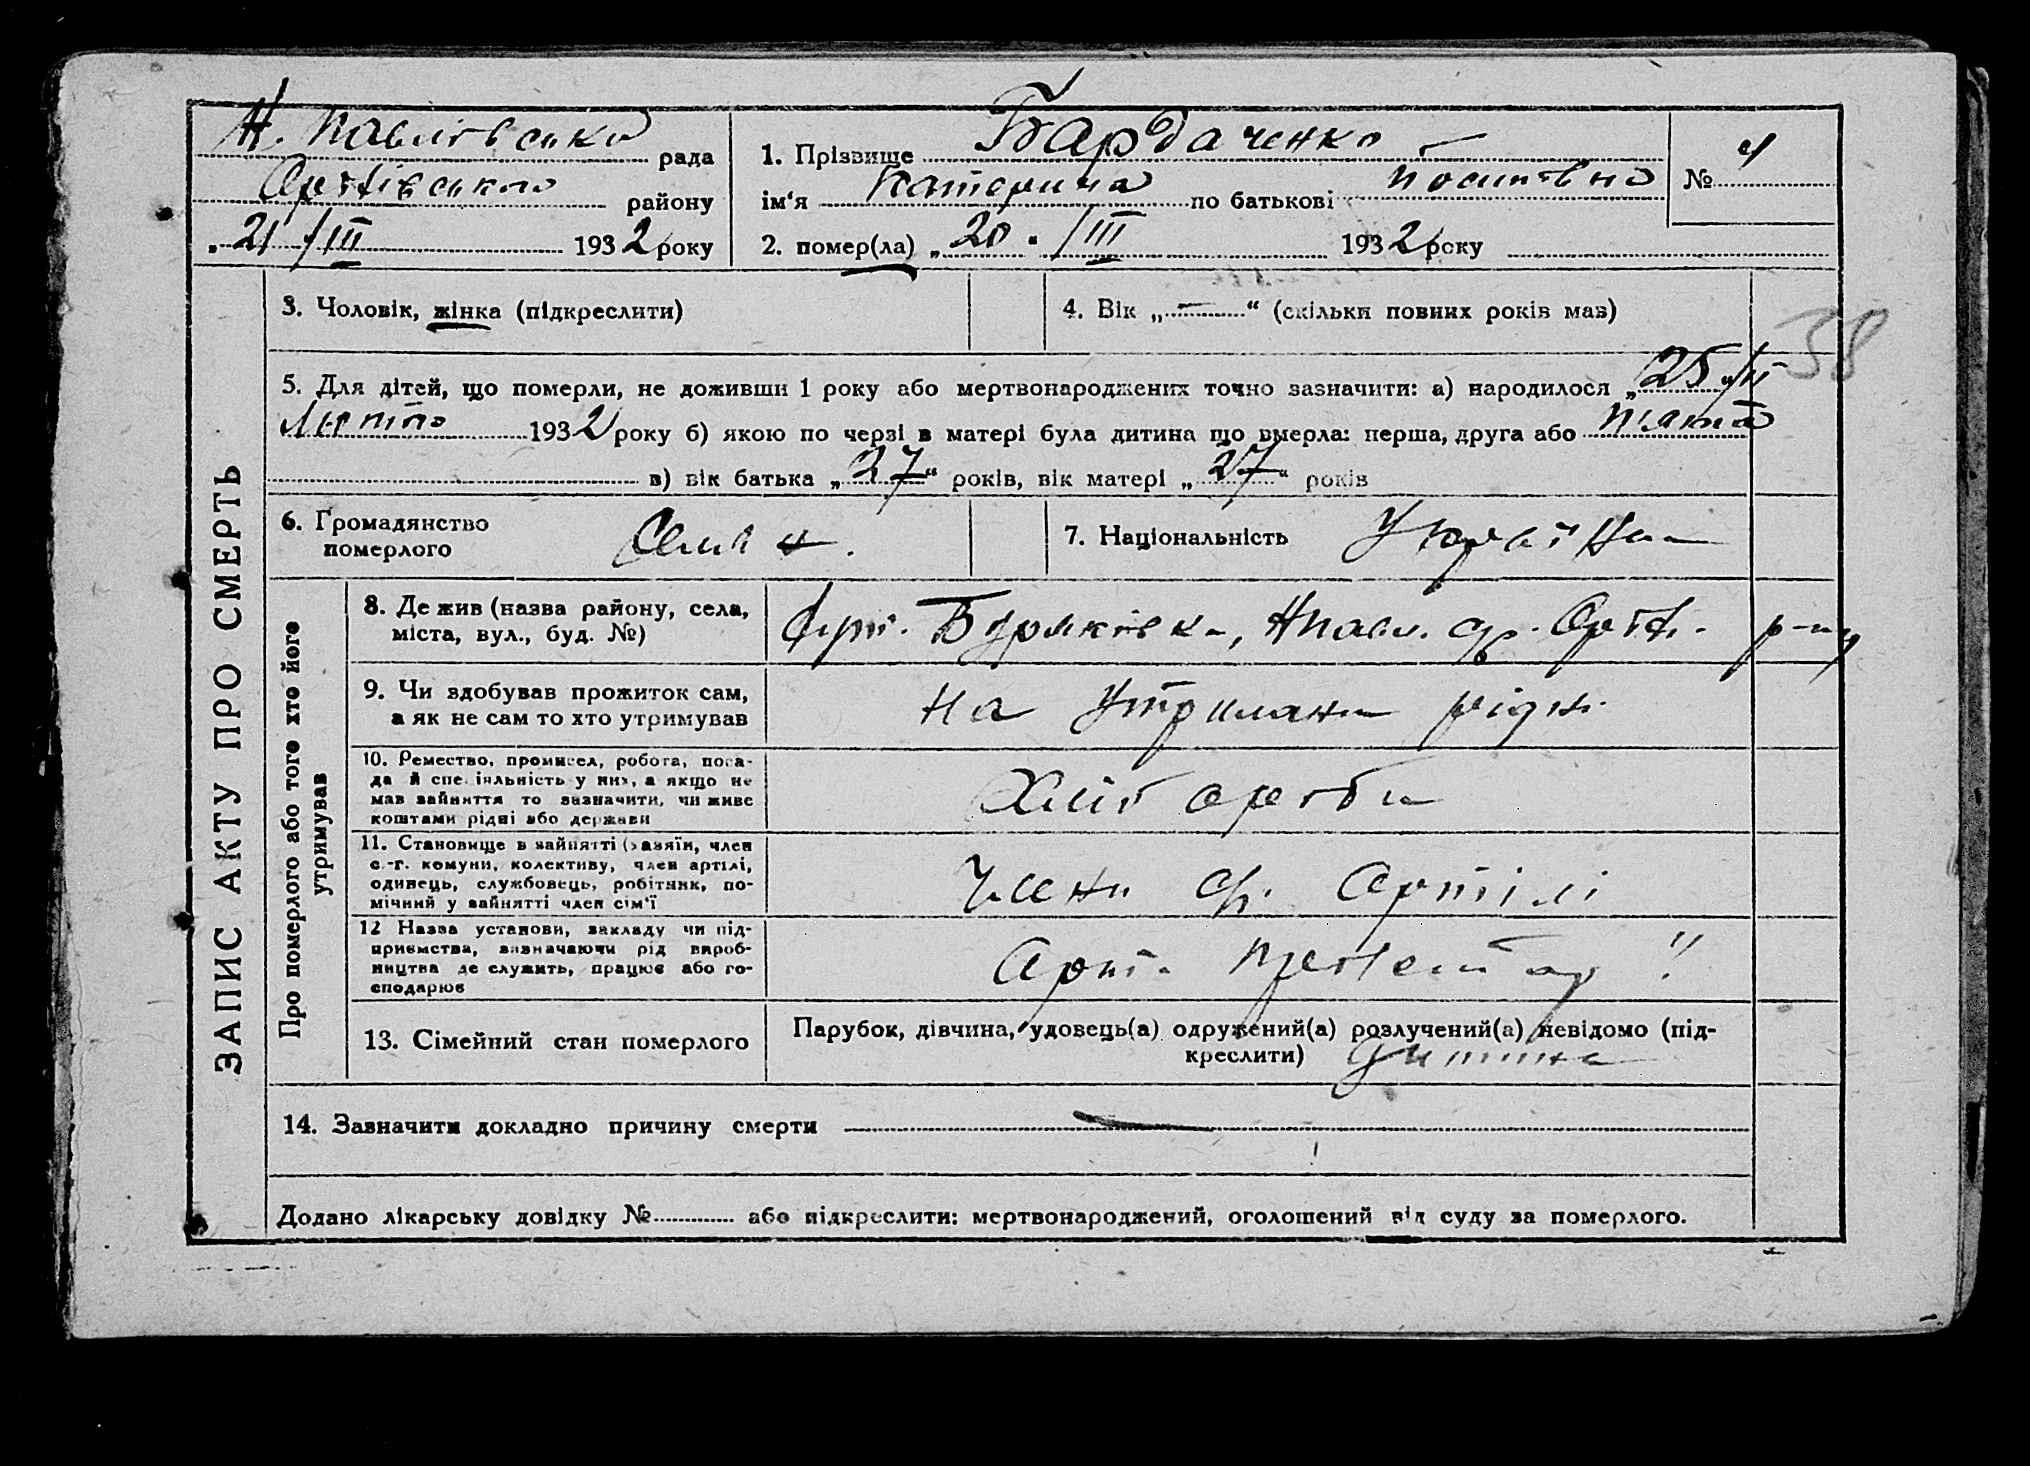 Н. Павлівська рада
Оріхівського району
„21 /III 1932 року
1. Прізвище Бардаченко
ім'я Катерина по батькові Йосипівна
2. помер(ла) „20" /III 1932 року
№ 4
3. Чоловік, жінка (підкреслити)
4. Вік „—" (скільки повних років мав)
38
5. Для дітей, що померли, не доживши 1 року або мертвонароджених точно зазначити: а) народилося „25"/II
Лютого 1932 року б) якою по черзі в матері була дитина що вмерла: перша, друга або п'ята
в) вік батька „27" років, вік матері „27" років
6. Громадянство
померлого
7. Національність Українка
ЗАПИС АКТУ ПРО СМЕРТЬ
Про померлого або того хто його
утримував
8. Де жив (назва району, села,
міста, вул., буд. №)
9. Чи здобував прожиток сам,
а як не сам то хто утримував
На утриманні рідні
10. Ремество, промисел, робота, поса-
да й спеціяльність у них, а якщо не
мав зайняття то зазначити, чи живе
коштами рідні або держави
Хлібороби
11. Становище в зайнятті (хазяїн, член
с.-г. комуни, колективу, член артілі,
одинець, службовець, робітник, по-
мічний у зайнятті член сім'ї
Члени с/г. Артілі
12 Назва установи, закладу чи під-
приємства, зазначаючи рід вироб-
ництва де служить, працює або го-
сподарює
13. Сімейний стан померлого
Парубок, дівчина, удовець(а) одружений(а) розлучений(а) невідомо (під-
креслити) Дитина
14. Зазначити докладно причину смерти —
Додано лікарську довідку № або підкреслити: мертвонароджений, оголошений від суду за померлого.